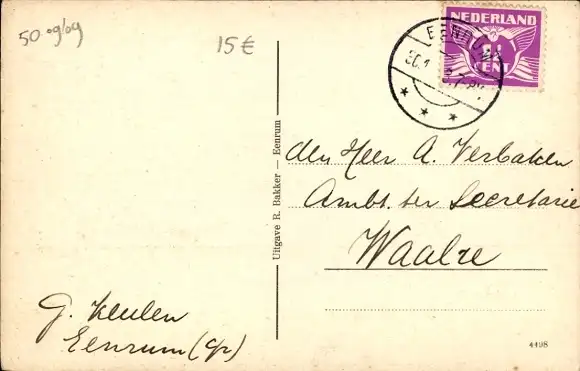 50 og/09
15 €
NEDERLAND
CENT
EENRUM
Uitgave R. Bakker — Eenrum
den Heer A. Verbaken
Ambt. ter Secretarie
Waalre
G. Keulen
Eenrum (Gr)
4498